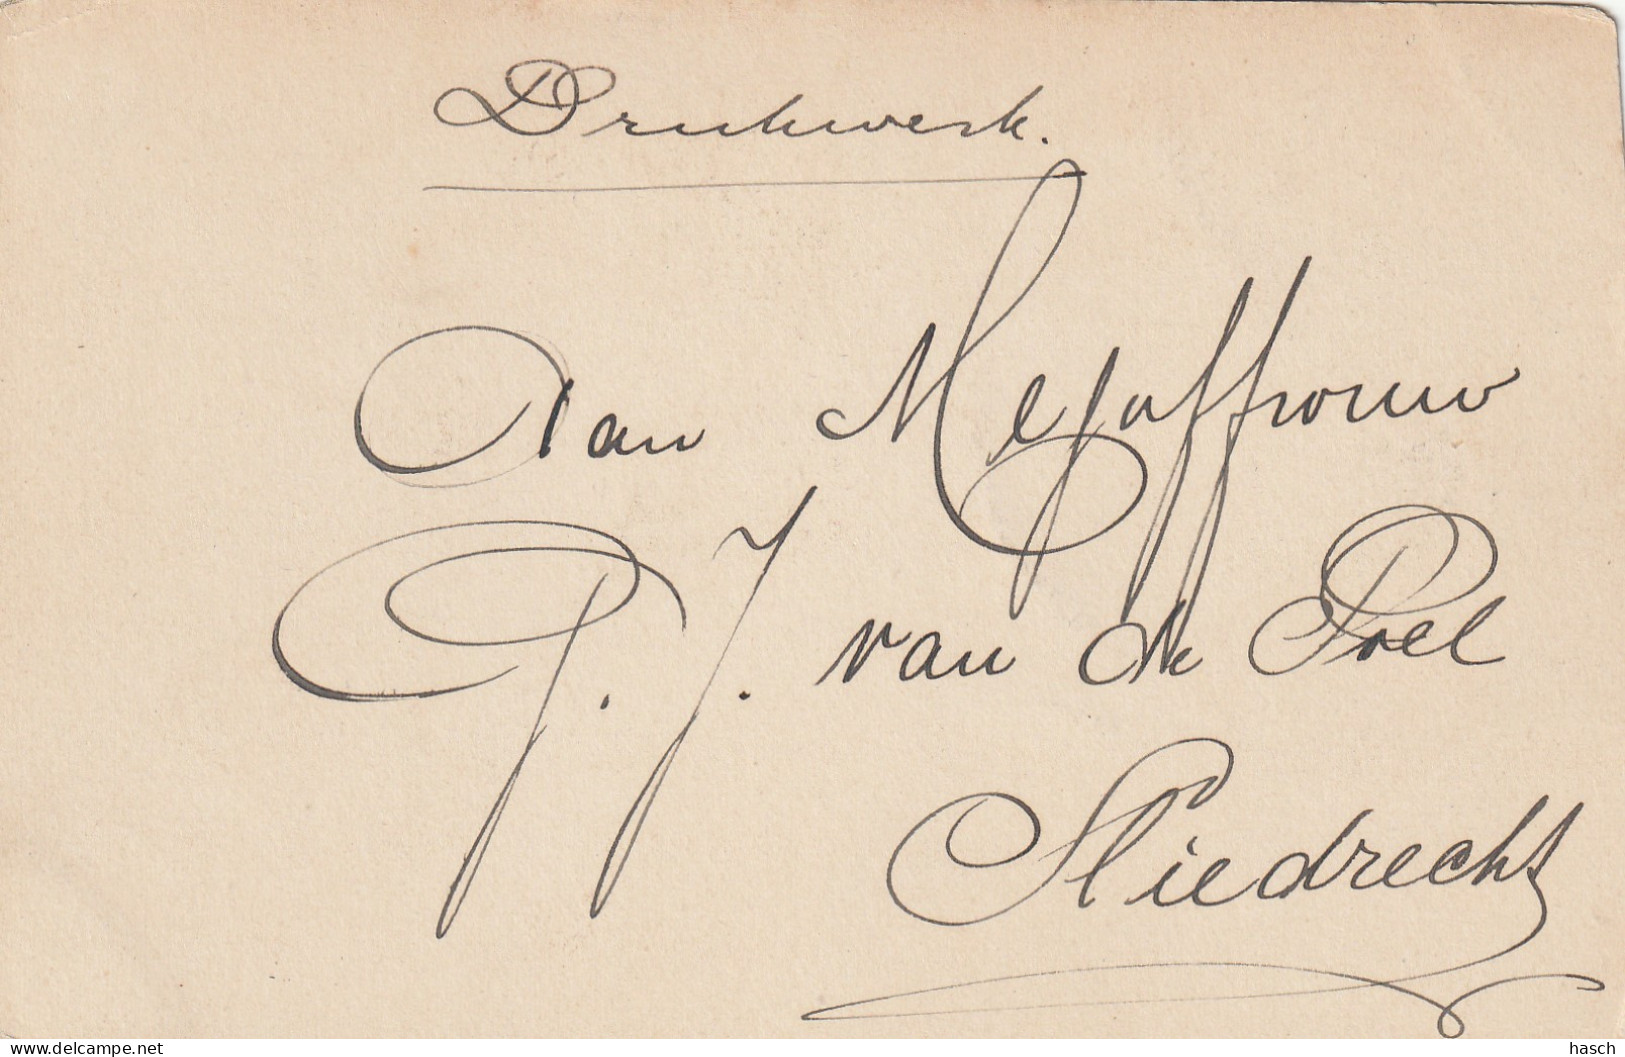 Drukwerk.
Aan Mejuffrouw
P. J. van de Poel
Sliedrecht
hasch
www.delcampe.net